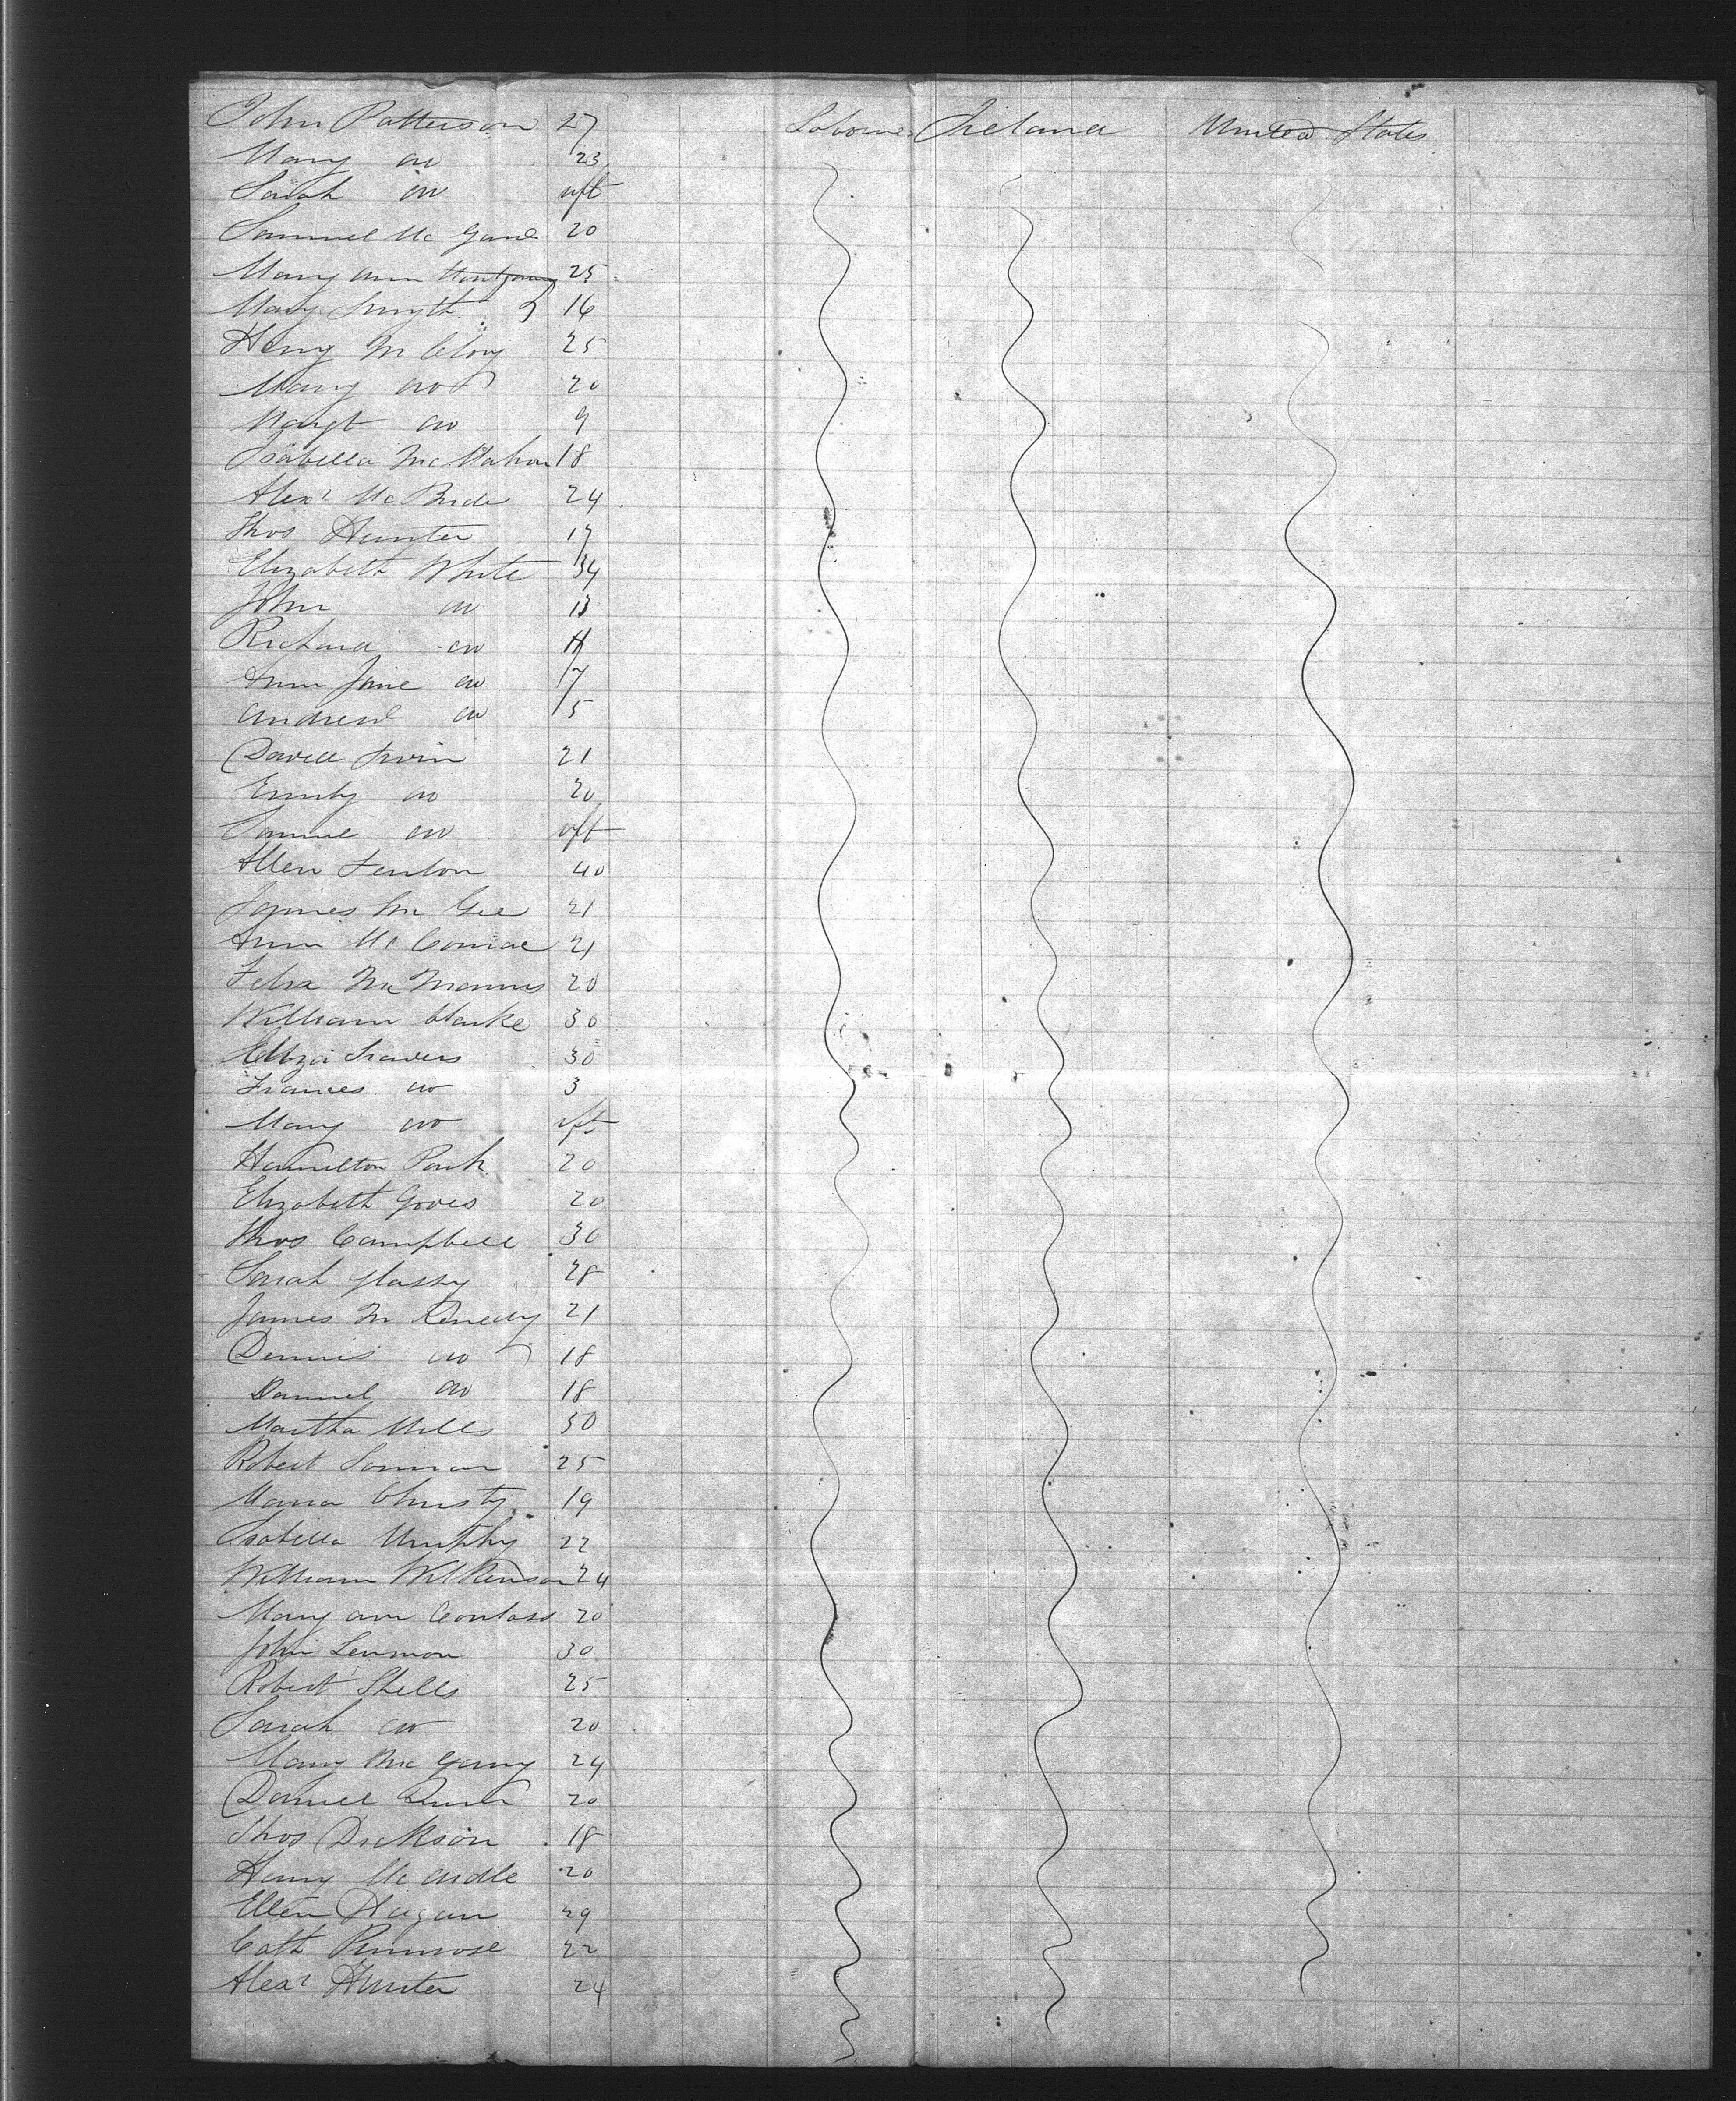 John Patterson 27 Laborer Ireland United States
Mary do 23
Sarah do inft
Samuel Mc 20
Mary Ann Montgomery 25
Mary Smyth 16
Henry McClory 25
Mary do 20
Margt do 9
Isabella McMahon 18
Alexr McBride 24
Thos Hunter 17
Elizabeth White 34
John do 13
Richard do 11
Ann Jane do 7
Andrew do 5
David Irvin 21
Emily do 20
Samuel do inft
Allen Fenton 40
James McGee 21
Ann Mc 21
Felix McManus 20
William Clarke 30
Eliza Travers 30
Frances do 3
Mary do inft
Hamilton Park 20
Elizabeth 20
Thos Campbell 30
Sarah Glassy 28
James McKenedy 21
Dennis do 18
Daniel do 18
Martha Mills 30
Robert 25
Maria Christy 19
Isabella Murphy 22
William Wilkenson 24
Mary Ann 20
John Lenmon 30
Robert Shells 25
Sarah do 20
Mary McGarry 24
Daniel 20
Thos Dickson 18
Henry McArdle 20
Ellen Hagan 29
Cath Primrose 22
Alexr Hunter 24